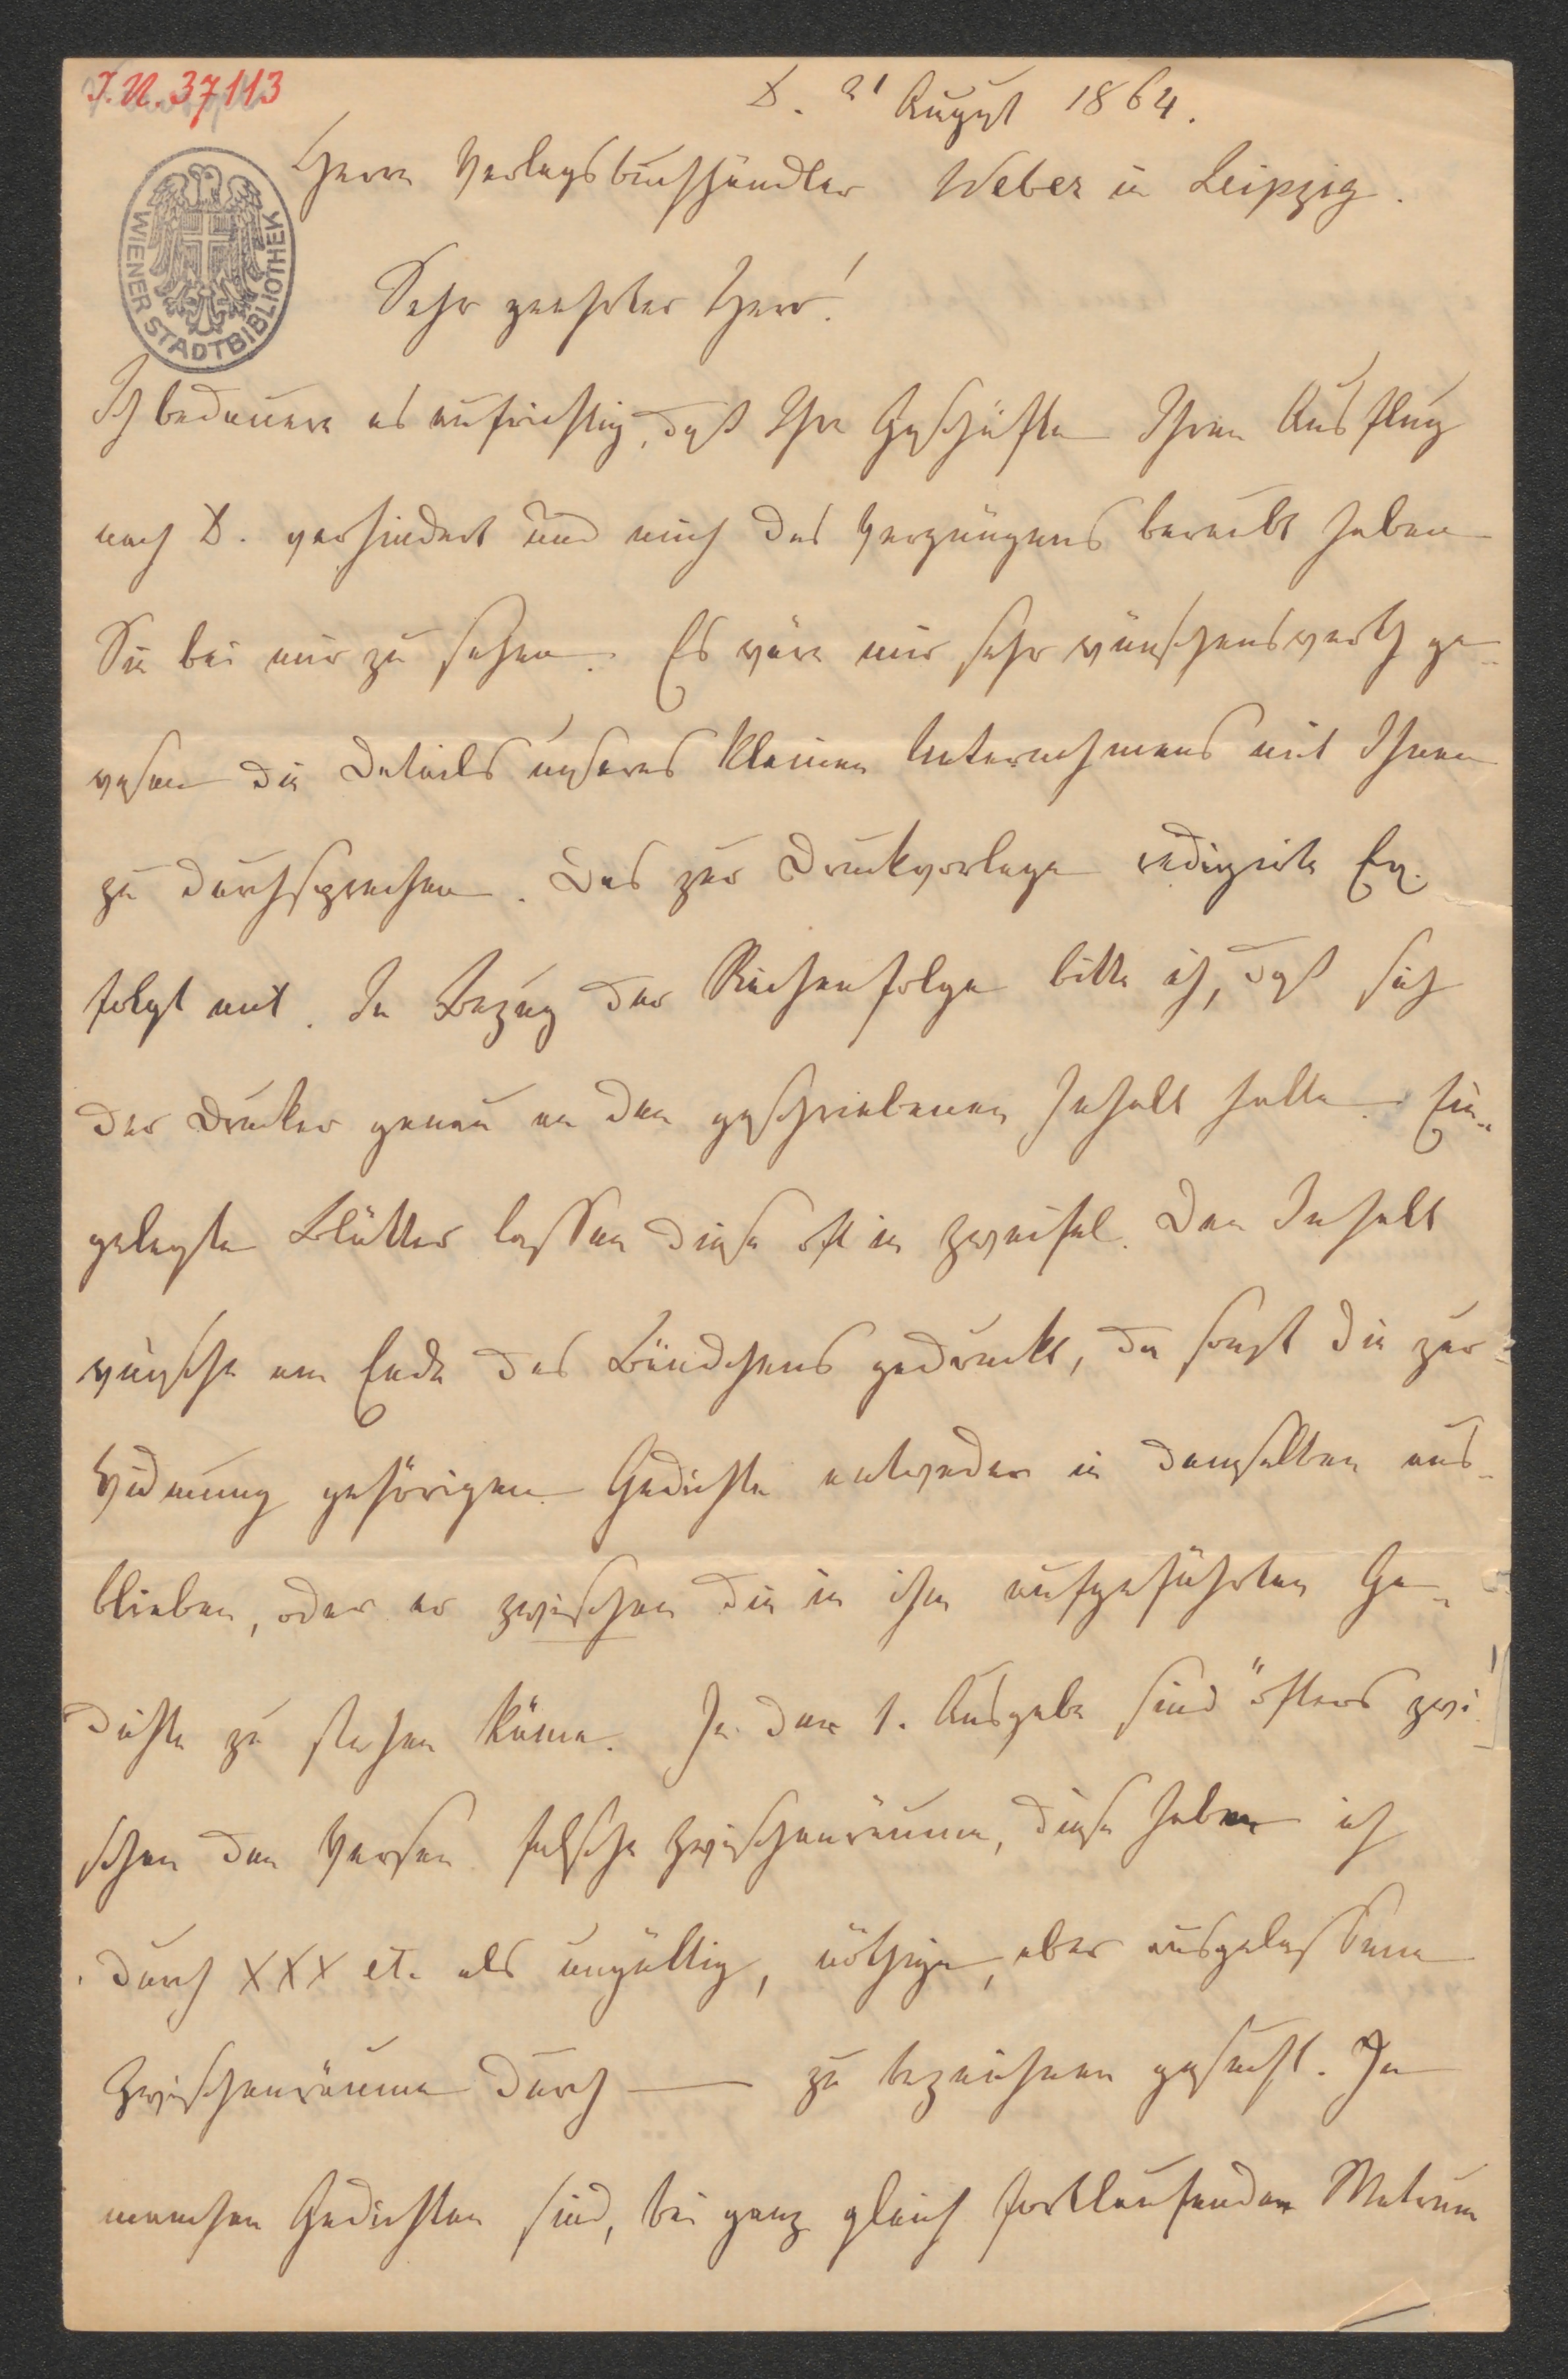 I. N. 37113
D. 21 August 1864.
Herrn Verlagsbuchhändler Weber in Leipzig.
WIENER STADTBIBLIOTHEK
Sehr geehrter Herr!
Ich bedauere es aufrichtig, daß Ihre Geschäfte Ihren Ausflug
nach D. verhindert und mich des Vergnügens beraubt haben
Sie bei mir zu sehen. Es wäre mir sehr wünschenswerth ge-
wesen die Details unseres kleinen Unternehmens mit Ihnen
zu durchsprechen. Das zur Druckvorlage redigirte Ex.
folgt mit. In Bezug der Reihenfolge bitte ich, daß sich
der Drucker genau an den geschriebenen Inhalt halte. Ein-
gelegte Blätter lassen diese oft in Zweifel. Den Inhalt
wünsche am Ende des Bändchens gedruckt, da sonst die zur
Widmung gehörigen Gedichte entweder in demselben aus-
blieben, oder er zwischen die in ihm aufgeführten Ge-
dichte zu stehen käme. In der 1. Ausgabe sind öfters zwi-
schen den Versen falsche Zwischenräume, diese habe ich
durch XXX etc. als ungültig, nöthige, aber ausgelassene
Zwischenräume durch — zu bezeichnen gesucht. In
manchen Gedichten sind, bei ganz gleich fortlaufendem Metrum